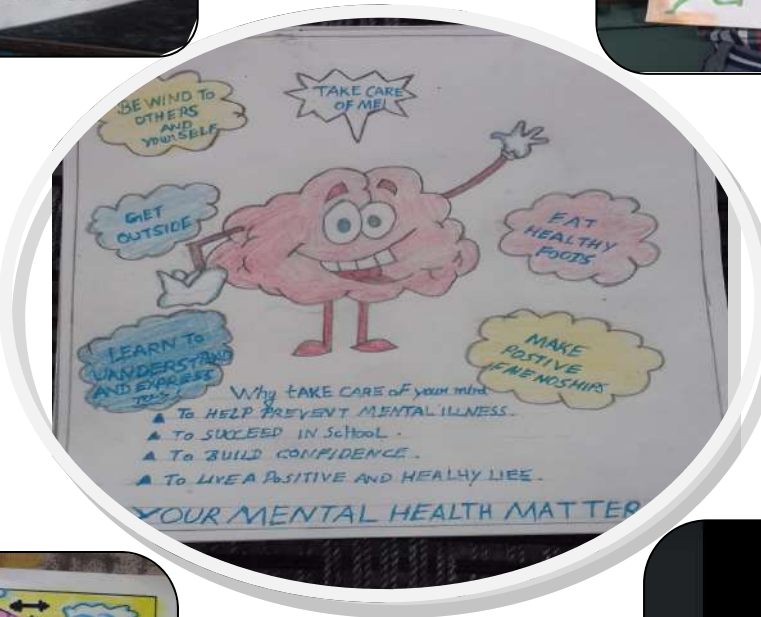 BE WIND TO
OTHERS
AND
YOURSELF
TAKE CARE
OF ME!
GET
OUTSIDE
EAT
HEALTHY
FOODS
LEARN TO
UANDERSTAND
AND EXPRESS
MAKE
POSTIVE
Why tAKE CARE of your mind
TO HELP PREVENT MENTAL ILLNESS.
TO SUCCEED IN SCHOOL.
TO BUILD CONFIDENCE.
TO LIVE A POSITIVE AND HEALHY LIEE.
YOUR MENTAL HEALTH MATTER